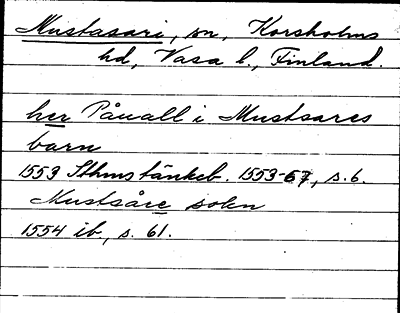 Mustasari, sn, Korsholms
hd, Vasa l., Finland.
her Påuall i Mustsares
barn
1553 Sthmstänkeb. 1553-67, s. 6.
Mustsåre sokn
1554 ib, s. 61.